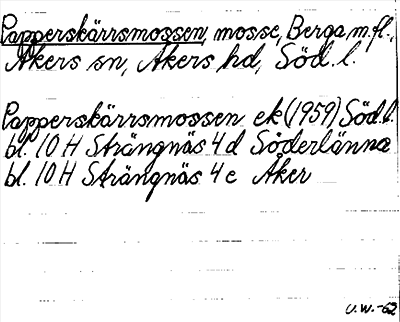 Papperskärrsmossen, mosse, Berga m.fl.,
Åkers sn, Åkers hd, Söd. l.
Papperskärrsmossen ek (1959) Söd. l.
bl. 10 H Strängnäs 4 d Söderlänna
bl. 10 H Strängnäs 4 e Åker
U.W.-62